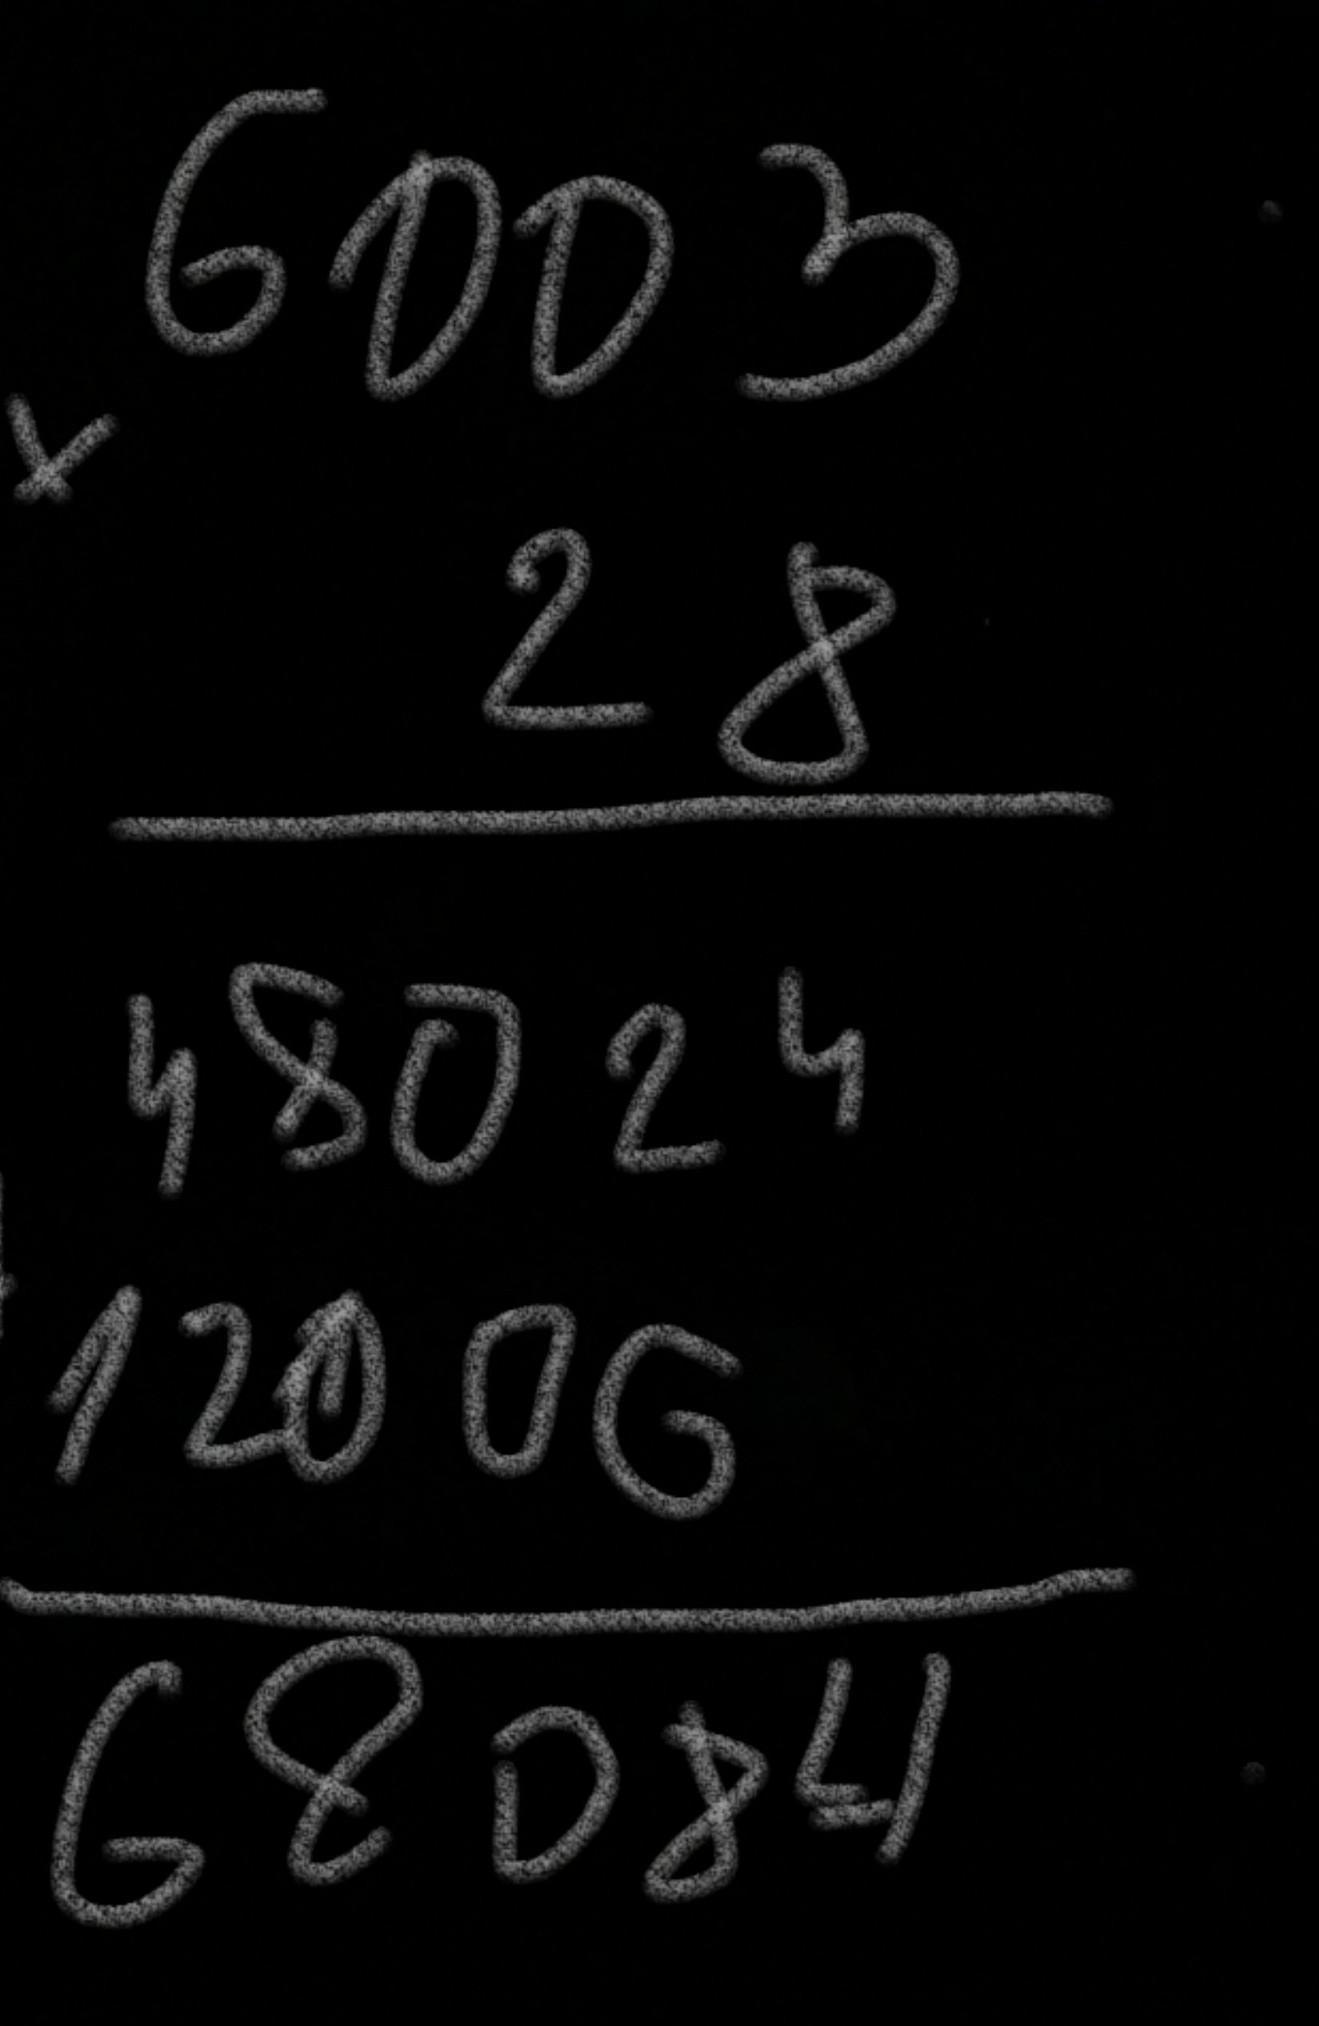 6003
x
28
48024
12006
68084